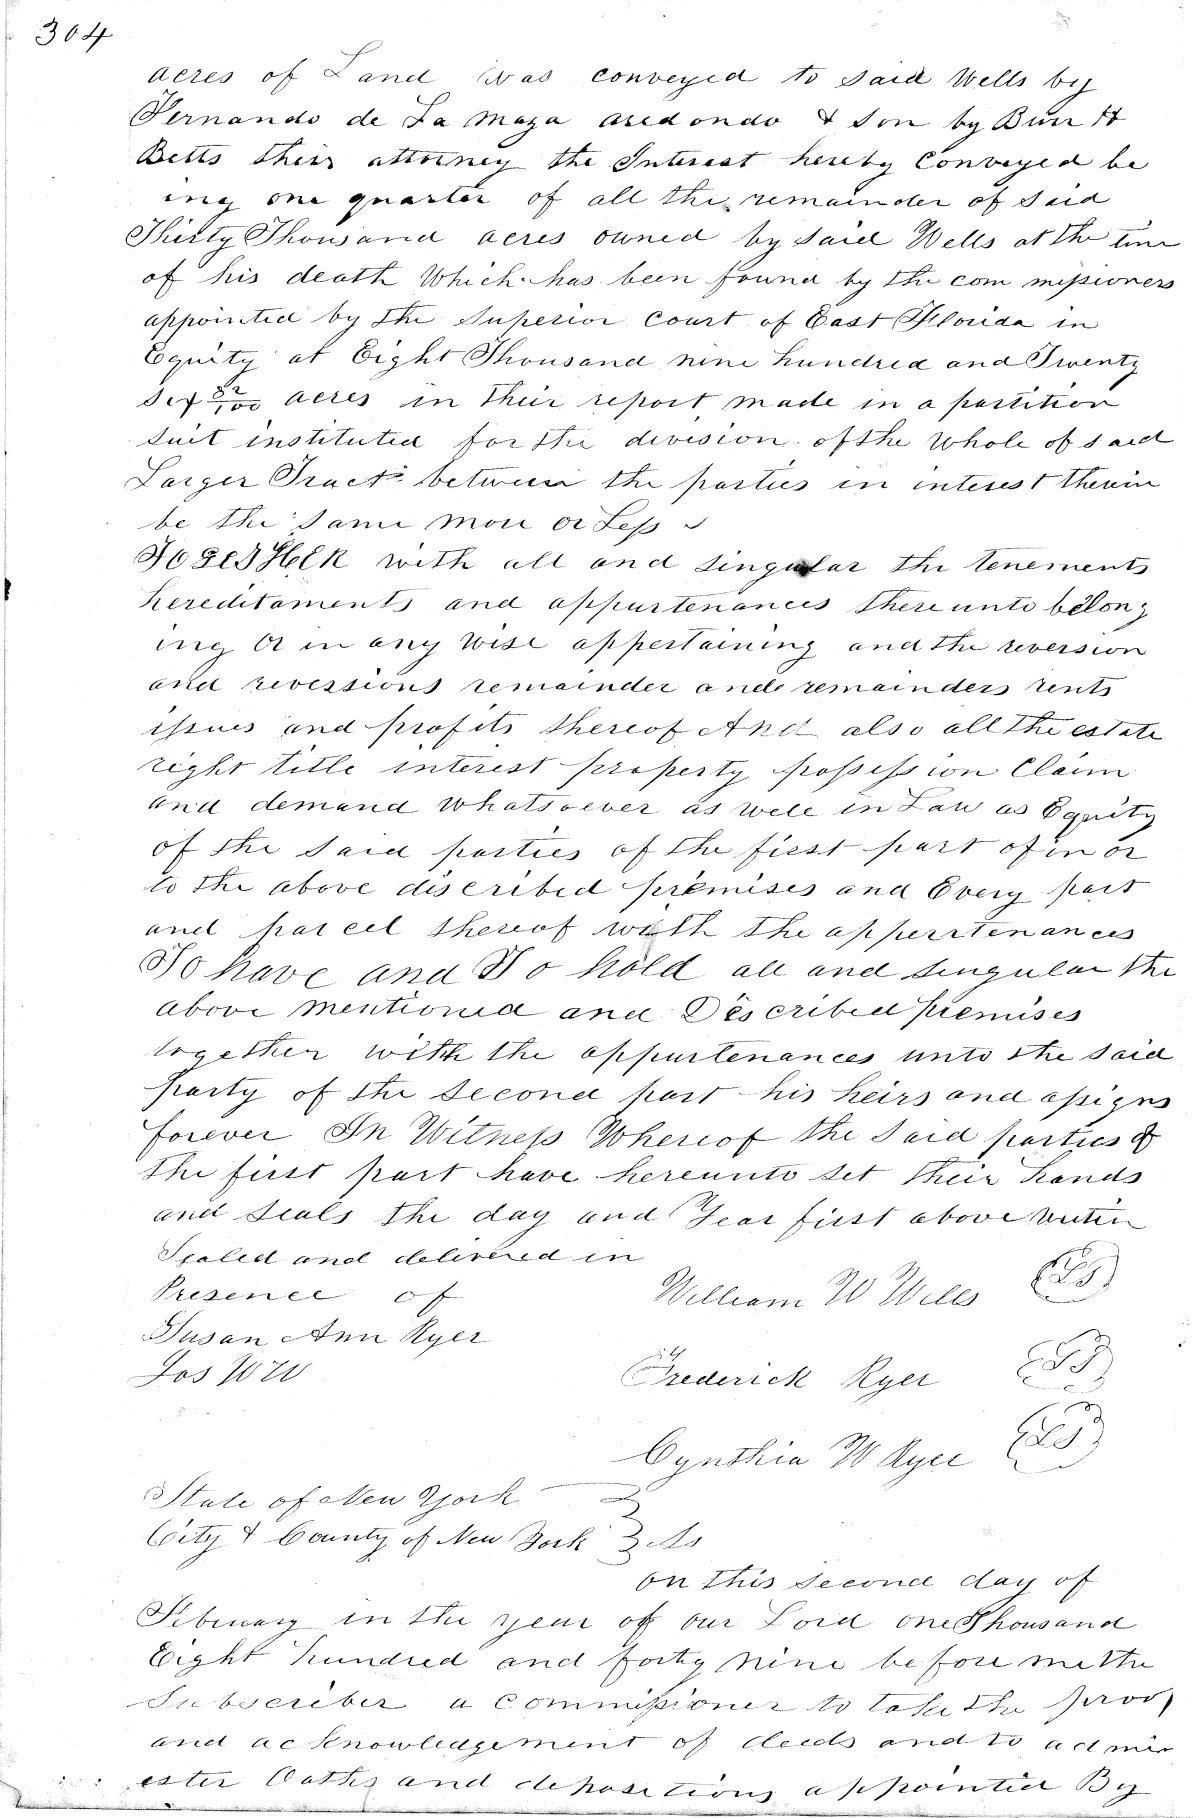 304
acres of Land was conveyed to said Wells by
Fernando de La Maza aredondo & Son by Burr H
Betts their attorney the Interest hereby Conveyed be
ing one quarter of all the remainder of said
Thirty Thousand acres owned by said Wells at the time
of his death Which has been found by the com missioners
appointed by the Superior Court of East Florida in
Equity at Eight Thousand nine hundred and Twenty
six 82/100 acres in their report made in a partition
suit instituted for the division of the Whole of said
Larger Tract between the parties in interest therein
be the same more or Less
TOGETHER with all and singular the tenements
hereditaments and appurtenances there unto belong
ing Or in any wise appertaining and the reversion
and reversions remainder and remainders rents
issues and profits thereof And also all the estate
right title interest property possession Claim
and demand Whatsoever as well in Law as Equity
of the said parties of the first part of in or
to the above discribed premises and Every part
and parcel thereof with the apperrtenances
To have and To hold all and singular the
above mentioned and Described premises
together with the appurtenances unto the said
party of the second part his heirs and assigns
forever In Witness Whereof the said parties of
the first part have hereunto set their hands
and seals the day and Year first above writen
Sealed and delivered in
Presence of
William W Wells (LS)
Susan Ann Ryer
Jos
Frederick Ryer (LS)
Cynthia W Ryer (LS)
State of New York
City & County of New York } ss
on this second day of
February in the year of our Lord one Thousand
Eight hundred and forty nine before me the
Subscriber a commissioner to take the proof
and acknowledgement of deeds and to admin
ester Oaths and depositions appointed By